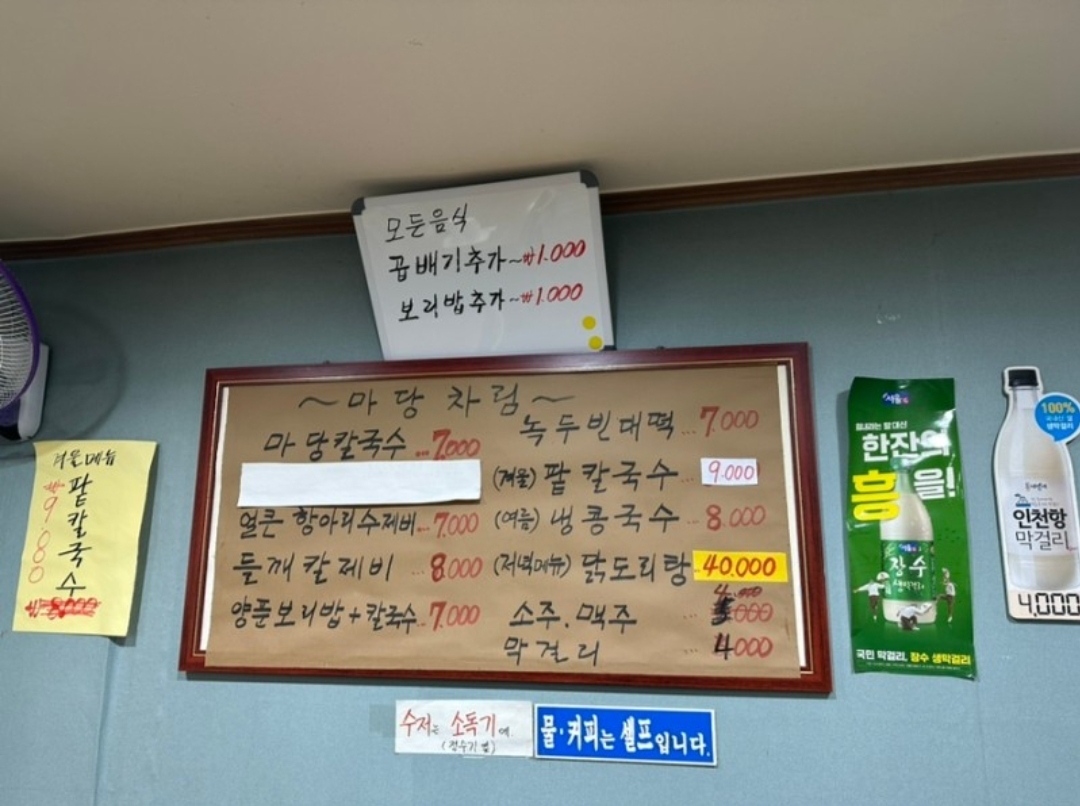 모든음식
곱배기추가~₩1.000
보리밥추가~₩1.000
~마당 차림~
마당칼국수...7,000
얼큰 항아리수제비...7,000
들깨칼제비...8.000
양푼보리밥+칼국수...7,000
녹두빈대떡...7.000
(겨울) 팥칼국수 9.000
(여름) 냉콩국수...8.000
(저녁메뉴) 닭도리탕 40.000
소주.맥주...4.000
막걸리...4000
겨울메뉴
팥칼국수
₩9.000
수저는 소독기에
(정수기 옆)
물·커피는 셀프입니다.
서울
한잔의
흥을!
장수
생막걸리
국민 막걸리, 장수 생막걸리
100%
국내산 쌀
생막걸리
인천항
막걸리
4,000